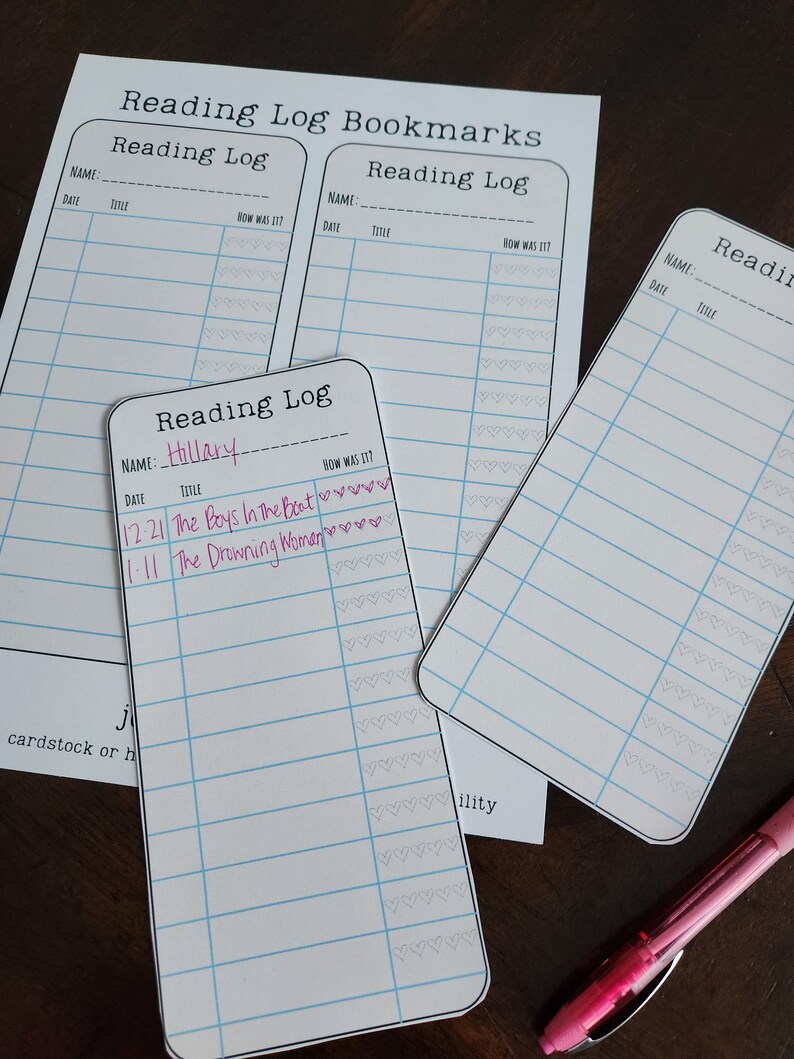 Reading Log Bookmarks
Reading Log
NAME:
DATE TITLE HOW WAS IT?
Reading Log
NAME:
DATE TITLE HOW WAS IT?
NAME:
DATE TITLE
Reading Log
NAME: Hillary
DATE TITLE HOW WAS IT?
12·21 The Boys In The Boat
1·11 The Drowning Woman
cardstock or